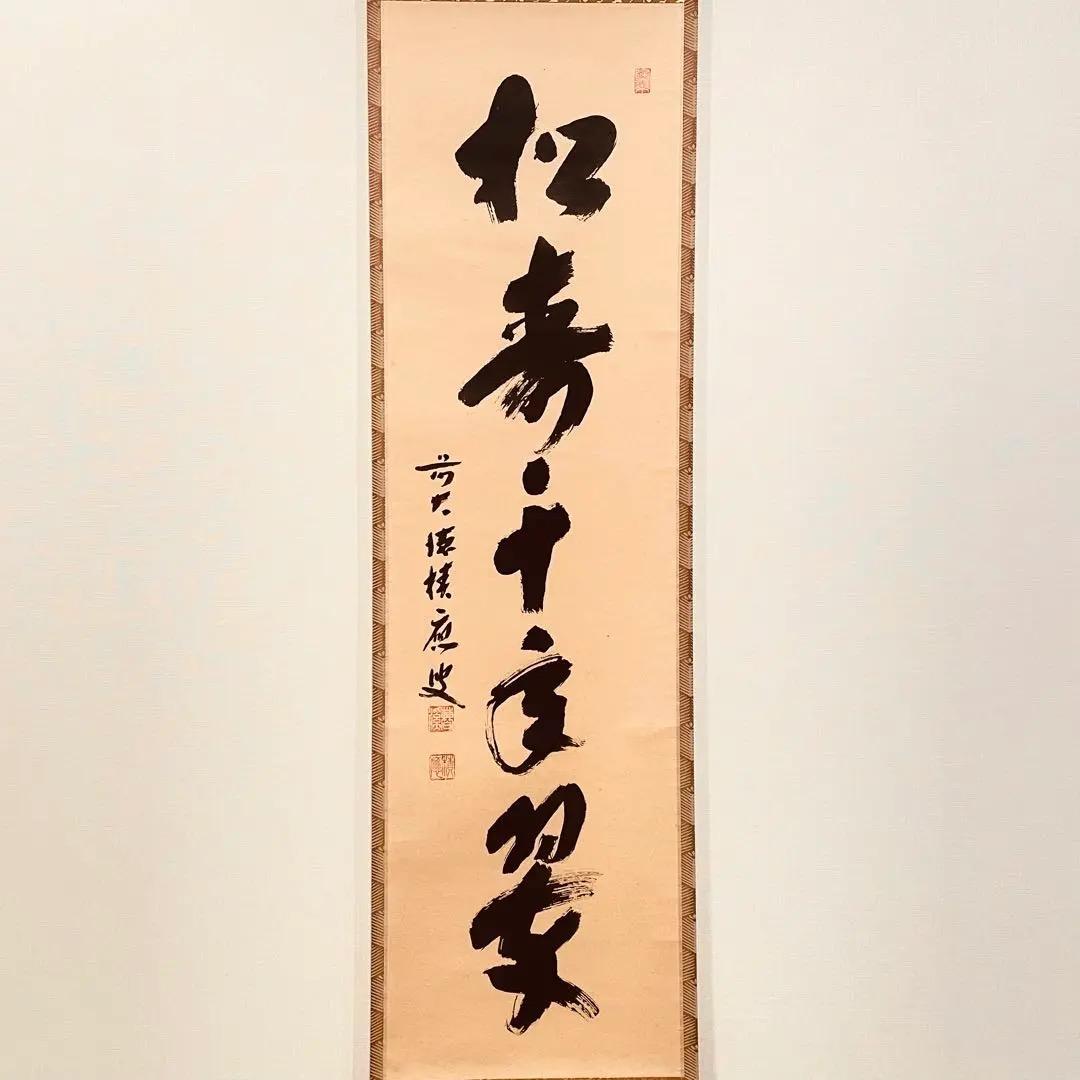 松寿千年翠
前大徳積應叟